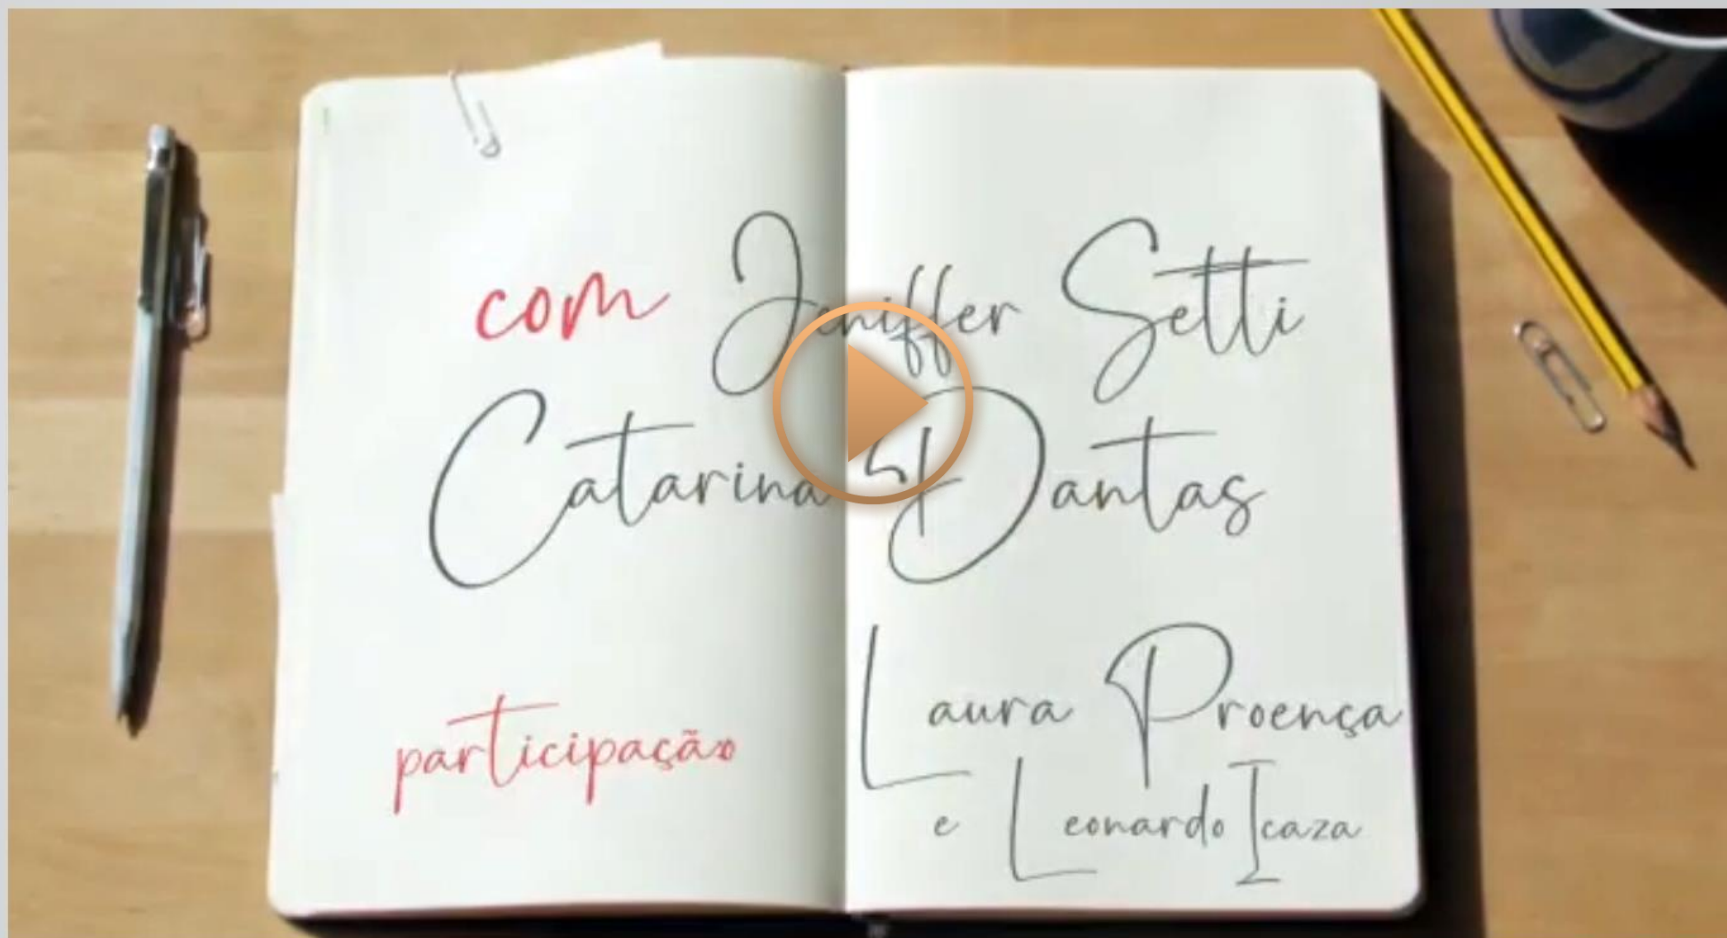 com Jeniffer Setti
Catarina Dantas
participação Laura Proença
e Leonardo Icaza